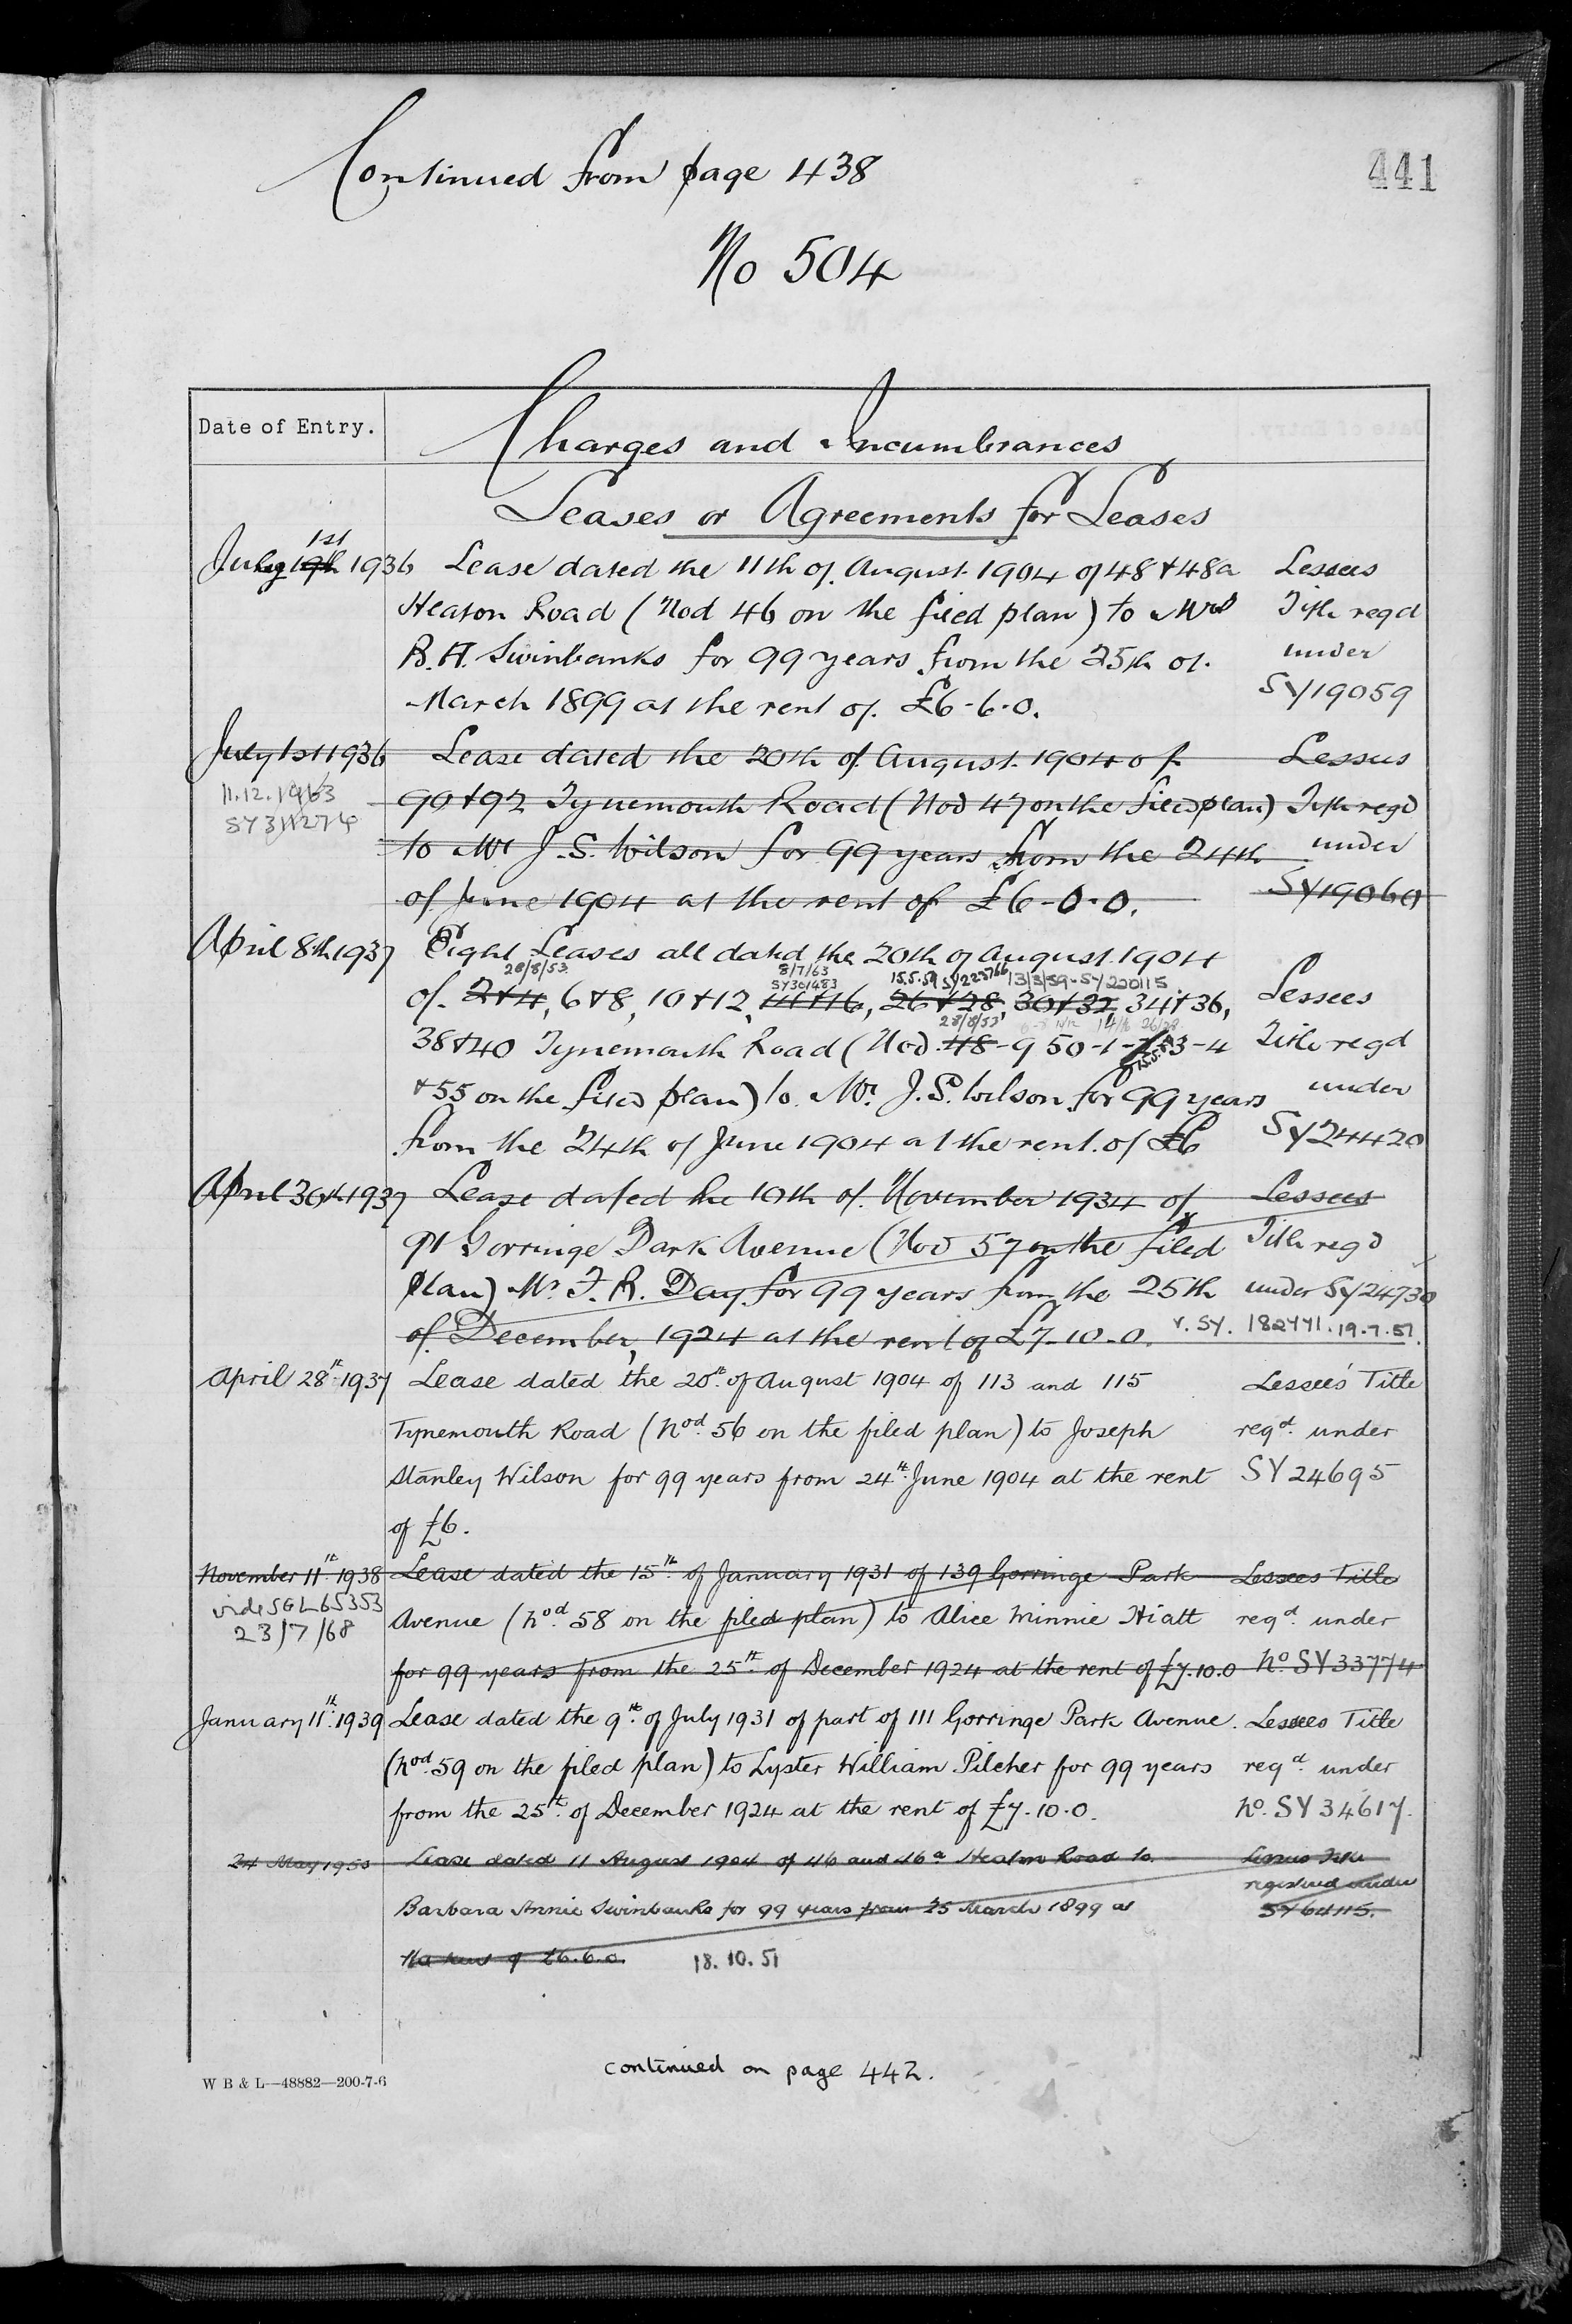 Continued from page 438
441
No 504
Date of Entry.
Charges and Incumbrances
Leases or Agreements for Leases
1st
July 19th 1936 Lease dated the 11th of August 1904 of 48 & 48a Lessees
Heaton Road (Nod 46 on the filed plan) to Mrs Title regd
B.A. Swinbanks for 99 years from the 25th of under
March 1899 at the rent of £6-6-0. SY19059
July 1st 1936 Lease dated the 20th of August 1904 of Lessees
11.12.1963 90 & 92 Tynemouth Road (Nod 47 on the filed plan) Title regd
to Mr J.S. Wilson for 99 years from the 24th under
of June 1904 at the rent of £6-0-0. SY19060
April 8th 1937 Eight Leases all dated the 20th of August 1904
28/8/53 8/7/63 SY301483 15.5.59 SY223766 13/3/59-SY220115
of 2 & 4, 6 & 8, 10 & 12, 14 & 16, 26 & 28, 30 & 32, 34 & 36, Lessees
28/8/53
38 & 40 Tynemouth Road (Nod 48-9 50-1-2 53-4 Title regd
& 55 on the filed plan) to Mr. J.S. Wilson for 99 years under
from the 24th of June 1904 at the rent of £6 SY24420
April 30th 1937 Lease dated the 10th of November 1934 of Lessees
91 Gorringe Park Avenue (Nod 57 on the filed Title regd
plan) Mr F.R. Day for 99 years from the 25th under SY24930
of December, 1924 at the rent of £7-10-0. v. SY. 182441. 19.7.51.
April 28th 1937 Lease dated the 20th of August 1904 of 113 and 115 Lessee's Title
Tynemouth Road (Nod 56 on the filed plan) to Joseph regd under
Stanley Wilson for 99 years from 24th June 1904 at the rent SY24695
of £6.
November 11th 1938 Lease dated the 15th of January 1931 of 139 Gorringe Park Lessees Title
vide SGL65353 Avenue (Nod 58 on the filed plan) to Alice Minnie Hiatt regd under
23/7/68
for 99 years from the 25th of December 1924 at the rent of £7.10.0 No SY33774
January 11th 1939 Lease dated the 9th of July 1931 of part of 111 Gorringe Park Avenue. Lessees Title
(Nod 59 on the filed plan) to Lyster William Pilcher for 99 years regd under
from the 25th of December 1924 at the rent of £7.10.0. No. SY34617.
24 May 1950 Lease dated 11 August 1904 of 46 and 46a Heaton Road to Lessees Title
registered under
Barbara Annie Swinbanks for 99 years from 25 March 1899 at SY64115.
the rent of £6.6.0. 18.10.51
continued on page 442.
W B & L—48882—200-7-6